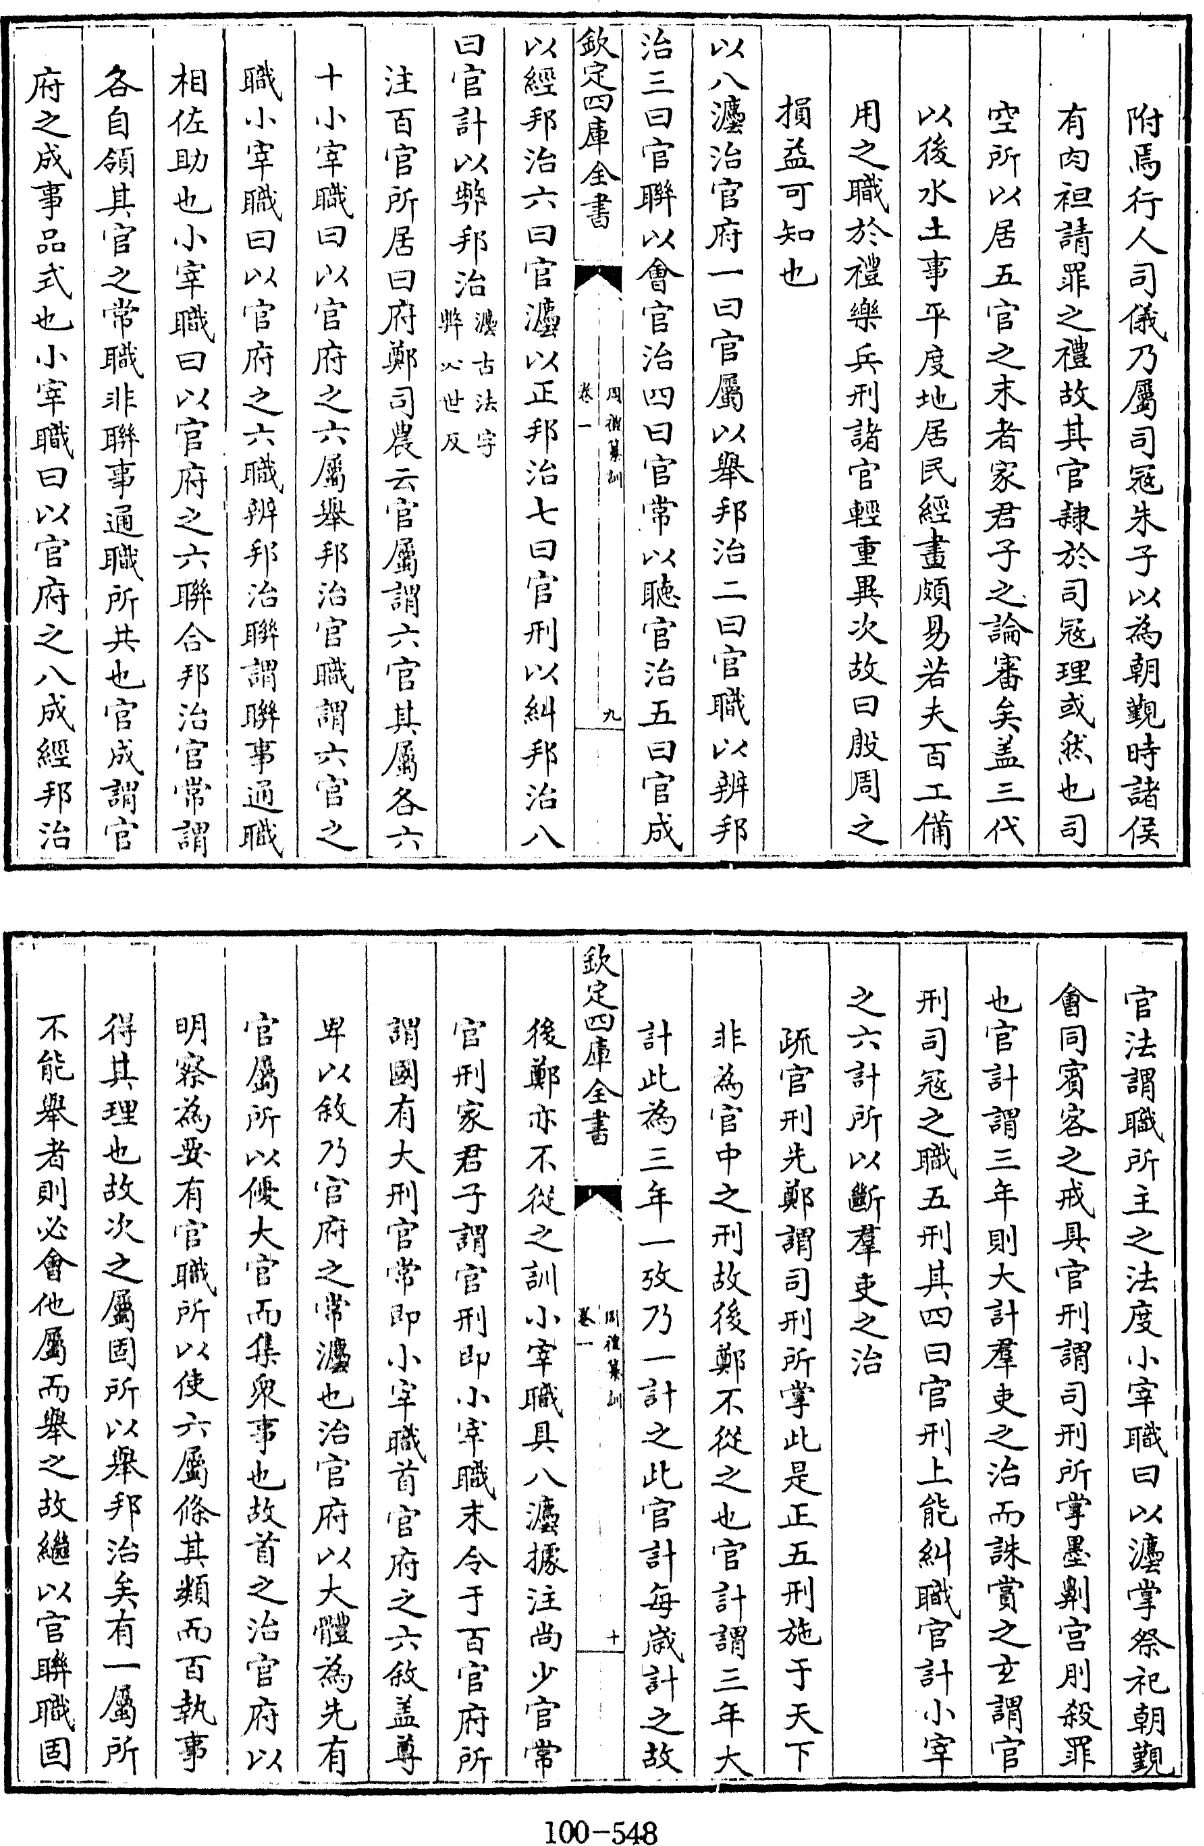 附焉行人司儀乃屬司冦朱子以為朝覲時諸侯
有肉袒請罪之禮故其官隸於司冦理或然也司
空所以居五官之末者家君子之論審矣盖三代
以後水土事平度地居民經畫頗易若夫百工備
用之職於禮樂兵刑諸官輕重異次故曰殷周之
損益可知也
以八灋治官府一曰官屬以舉邦治二曰官職以辨邦
治三曰官聯以會官治四曰官常以聽官治五曰官成
欽定四庫全書
周禮纂訓
卷一
九
以經邦治六曰官灋以正邦治七曰官刑以糾邦治八
曰官計以弊邦治灋古法字
弊必世反
注百官所居曰府鄭司農云官屬謂六官其屬各六
十小宰職曰以官府之六屬舉邦治官職謂六官之
職小宰職曰以官府之六職辨邦治聯謂聯事通職
相佐助也小宰職曰以官府之六聯合邦治官常謂
各自領其官之常職非聯事通職所共也官成謂官
府之成事品式也小宰職曰以官府之八成經邦治
官法謂職所主之法度小宰職曰以灋掌祭祀朝覲
會同賓客之戒具官刑謂司刑所掌墨劓宮刖殺罪
也官計謂三年則大計羣吏之治而誅賞之玄謂官
刑司冦之職五刑其四曰官刑上能糾職官計小宰
之六計所以斷羣吏之治
疏官刑先鄭謂司刑所掌此是正五刑施于天下
非為官中之刑故後鄭不從之也官計謂三年大
計此為三年一攷乃一計之此官計每歲計之故
欽定四庫全書
周禮纂訓
卷一
十
後鄭亦不從之訓小宰職具八灋據注尚少官常
官刑家君子謂官刑即小宰職末令于百官府所
謂國有大刑官常即小宰職首官府之六敘盖尊
卑以敘乃官府之常灋也治官府以大體為先有
官屬所以優大官而集衆事也故首之治官府以
明察為要有官職所以使六屬條其類而百執事
得其理也故次之屬固所以舉邦治矣有一屬所
不能舉者則必會他屬而舉之故繼以官聯職固
100-548